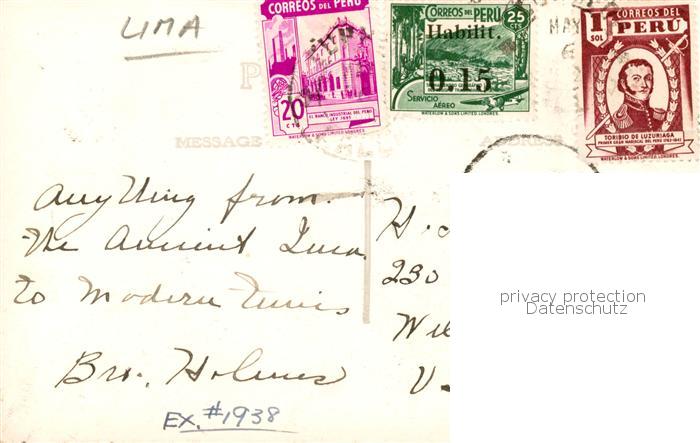 LIMA
CORREOS DEL PERU
20 CTS
EL BANCO INDUSTRIAL DEL PERU
LEY 7695
WATERLOW & SONS LIMITED, LONDRES.
CORREOS DEL PERÚ
25 CTS
Habilit.
0.15
SERVICIO AÉREO
WATERLOW & SONS LIMITED, LONDRES.
MAY
6
CORREOS DEL PERÚ
1 SOL
TORIBIO DE LUZURIAGA
PRIMER GRAN MARISCAL DEL PERU (1782-1842)
WATERLOW & SONS LIMITED, LONDRES.
MESSAGE
ADDRESS
Anything from
the Ancient Inca
to Modern times
Bro. Holmes
EX. #1938
H.
230
Wil
U
privacy protection
Datenschutz